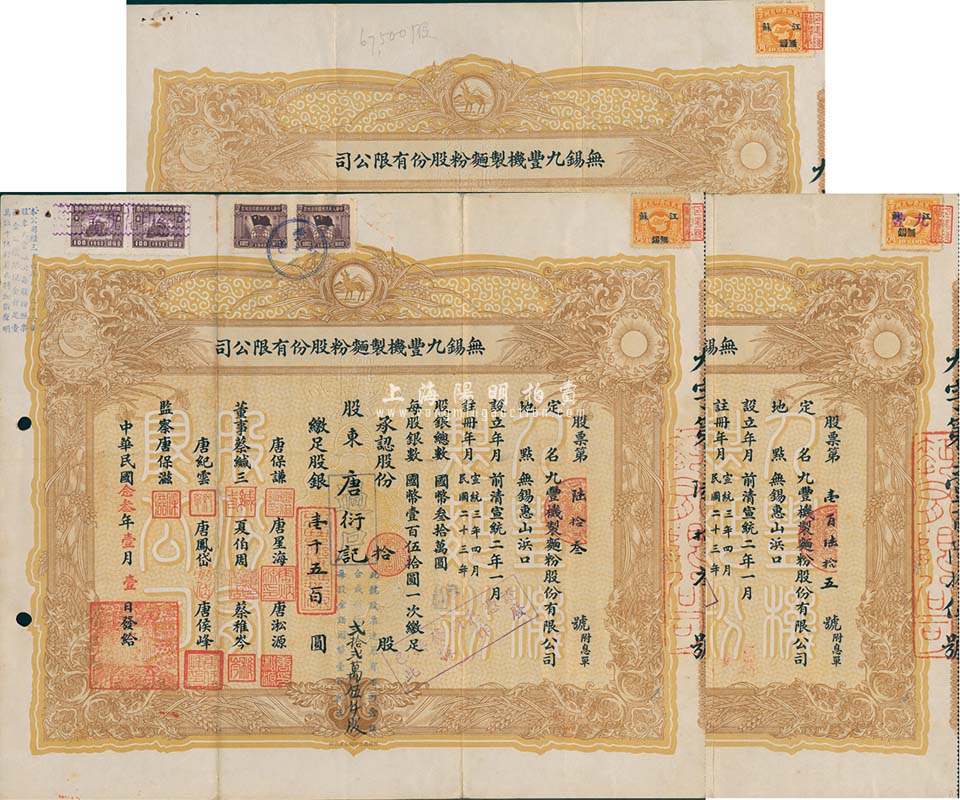 67,500股
江蘇
無錫
司公限有份股粉麵製機豐九錫無
江蘇
無錫
司公限有份股粉麵製機豐九錫無
股票第 陸拾叁 號附息單
定名 九豐機製麵粉股份有限公司
地點 無錫惠山浜口
設立年月 前清宣統二年一月
註冊年月 宣統三年四月 民國二十三年
股銀總數 國幣叁拾萬圓
每股銀數 國幣壹百伍拾圓一次繳足
承認股份 拾 股
股東 唐衍記
繳足股銀 壹千五百 圓
弍拾弍萬伍仟股
唐保謙 唐星海 唐淞源
董事 蔡緘三 夏伯周 蔡稚岑
唐紀雲 唐鳳岱 唐侯峰
監察 唐保滋
中華民國念叁年壹月壹日發給
上海陽明拍賣
100 1952
100 1952
江蘇
無錫
無錫
股票第 壹百陸拾五 號附息單
定名 九豐機製麵粉股份有限公司
地點 無錫惠山浜口
設立年月 前清宣統二年一月
註冊年月 宣統三年四月 民國二十三年